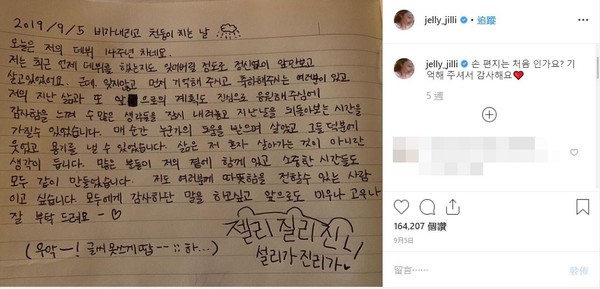 2019/9/5 비가내리고 천둥이 치는 날
오늘은 저의 데뷔 14주년 차네요.
저는 최근 언제 데뷔를 했는지도 잊어버릴 정도로 정신없이 앞만보고
살고있었어요. 근데, 잊지않고 먼저 기억해 주시고 축하해주시는 여러분이 있고
저의 지난 삶과 또 앞으로의 계획도 진심으로 응원해주심에
감사함을 느껴 수 많은 생각들을 잠시 내려놓고 지난날을 되돌아보는 시간을
가질수 있었습니다. 매 순간 누군가의 도움을 받으며 살았고 그들 덕분에
웃었고 용기를 낼 수 있었습니다. 삶은 저 혼자 살아가는 것이 아니란
생각이 듭니다. 많은 분들이 저의 곁에 함께 있고 소중한 시간들도
모두 같이 만들었습니다. 저도 여러분께 따뜻함을 전할수 있는 사람
이고 싶습니다. 모두에게 감사하단 말을 하고싶고 앞으로도 미우나 고우나
잘 부탁 드려요 ~ ♡
(우악—! 글씨 못쓰게땁 -- ;; 하...)
젤리 질리 진리
설리가 진리가
jelly_jilli • 追蹤
jelly_jilli 손 편지는 처음 인가요? 기
억해 주셔서 감사해요❤
5 週
164,207 個讚
9月5日
留言……
發佈